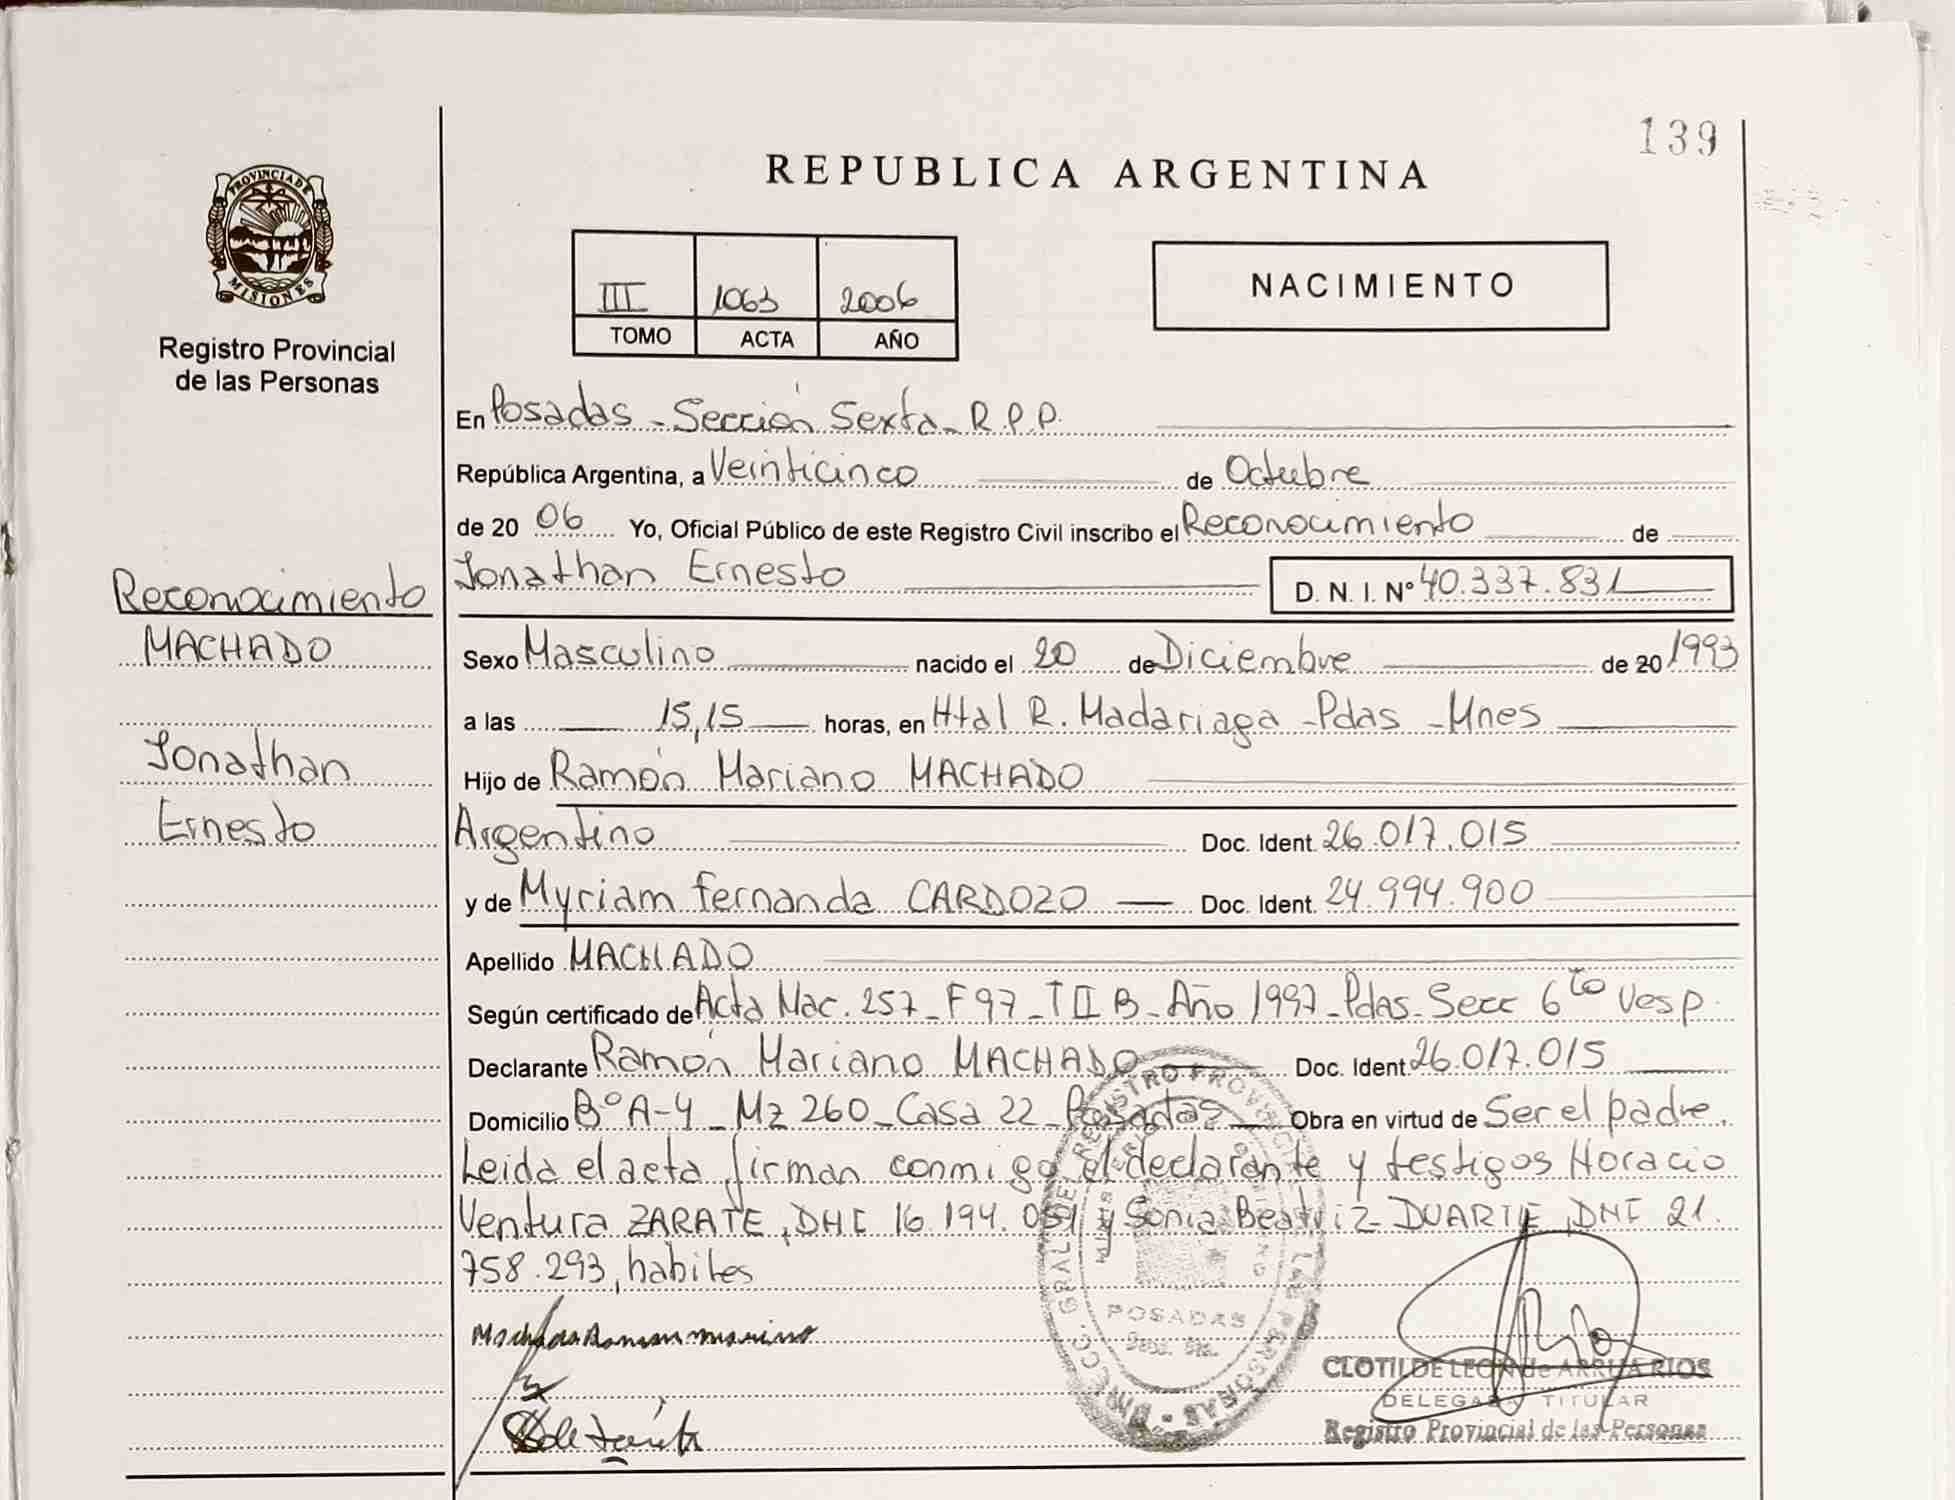 139
REPUBLICA ARGENTINA
PROVINCIA DE
MISIONES
Registro Provincial
de las Personas
III 1063 2006
TOMO ACTA AÑO
NACIMIENTO
En Posadas - Sección Sexta - R.P.P.
República Argentina, a Veinticinco de Octubre
de 20 06 Yo, Oficial Público de este Registro Civil inscribo el Reconocimiento de
Jonathan Ernesto D. N. I. Nº 40.337.831
Reconocimiento
MACHADO
Jonathan
Ernesto
Sexo Masculino nacido el 20 de Diciembre de 20 1993
a las 15,15 horas, en Htal R. Madariaga - Pdas - Mnes
Hijo de Ramón Mariano MACHADO
Argentino Doc. Ident. 26.017.015
y de Myriam Fernanda CARDOZO Doc. Ident. 24.994.900
Apellido MACHADO
Según certificado de Acta Nac. 257 - F 97 - T II B - Año 1997 - Pdas - Secc 6to Vesp.
Declarante Ramón Mariano MACHADO Doc. Ident 26.017.015
Domicilio Bº A-4 - Mz 260 - Casa 22 - Posadas Obra en virtud de Ser el padre.
Leida el acta firman conmigo el declarante y testigos Horacio
Ventura ZARATE, DNI 16.194.051 y Sonia Beatriz DUARTE, DNI 21.
758.293, habiles
Machado Ramon Mariano
POSADAS
CLOTILDE LEON de ARRUA RIOS
DELEGADA TITULAR
Registro Provincial de las Personas